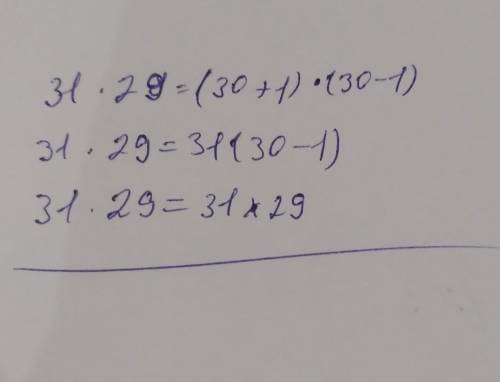 31 · 29 = (30 + 1) · (30 - 1)
31 · 29 = 31 · (30 - 1)
31 · 29 = 31 × 29